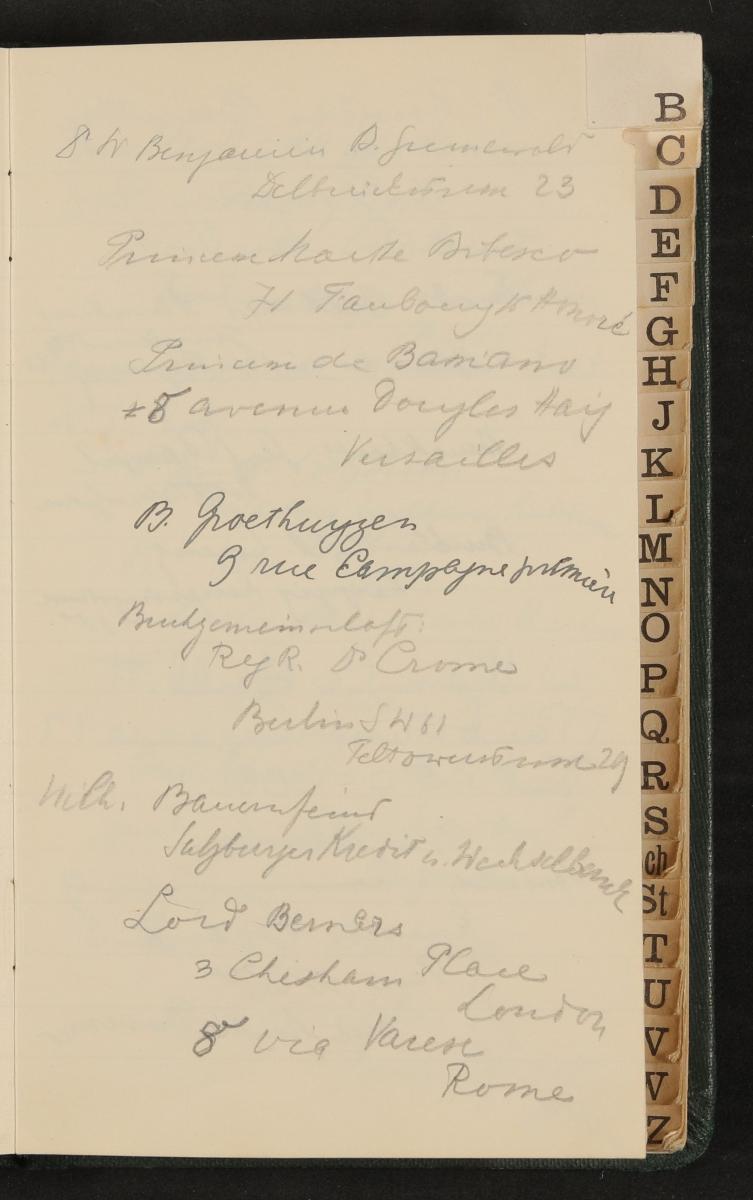 Dr W Benjamin B. Grunewald
Delbrückstrasse 23
Princesse Marthe Bibesco
71 Faubourg St Honoré
Princesse de Bassiano
8 avenue Douglas Haig
Versailles
B. Groethuyzen
9 rue Campagne première
Buchgemeinschaft:
Reg R. Dr Crome
Berlin SW 61
Teltowerstrasse 29
Wilh. Bauernfeind
Salzburger Kredit u. Wechselbank
Lord Berners
3 Chesham Place
London
8 via Varese
Rome
B
C
D
E
F
G
H
J
K
L
M
N
O
P
Q
R
S
ch
St
T
U
V
V
Z